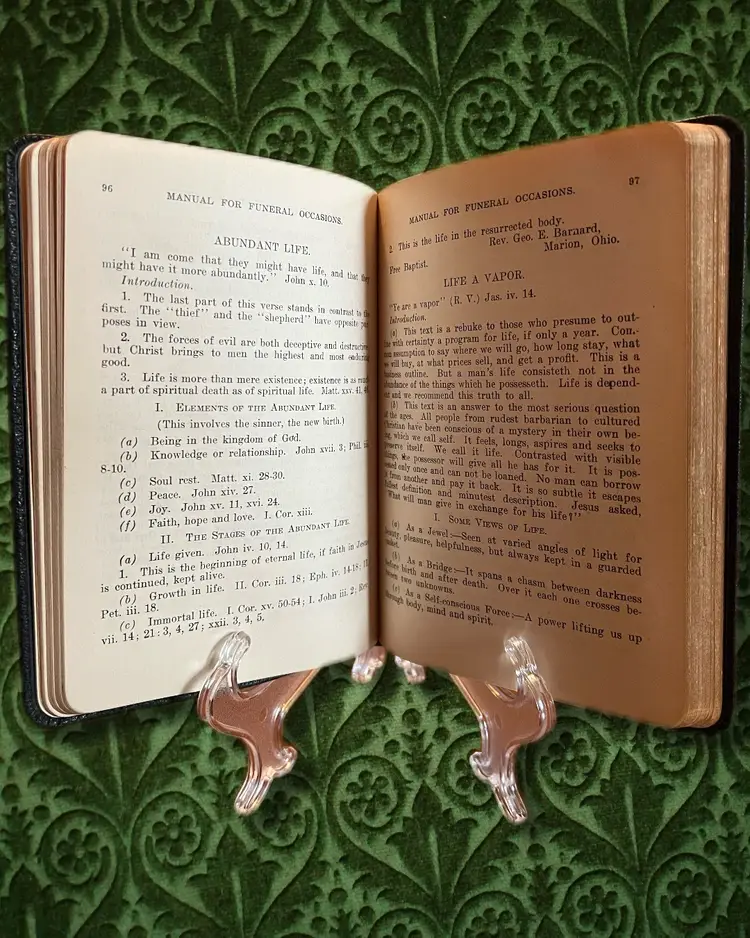 96
MANUAL FOR FUNERAL OCCASIONS.
ABUNDANT LIFE.
"I am come that they might have life, and that they
might have it more abundantly." John x. 10.
Introduction.
1. The last part of this verse stands in contrast to the
first. The "thief" and the "shepherd" have opposite
poses in view.
2. The forces of evil are both deceptive and destructive
but Christ brings to men the highest and most enduring
good.
3. Life is more than mere existence; existence is as
a part of spiritual death as of spiritual life. Matt. xxv.
I. ELEMENTS OF THE ABUNDANT LIFE.
(This involves the sinner, the new birth.)
(a) Being in the kingdom of God.
(b) Knowledge or relationship. John xvii. 3; Phil.
8-10.
(c) Soul rest. Matt. xi. 28-30.
(d) Peace. John xiv. 27.
(e) Joy. John xv. 11, xvi. 24.
(f) Faith, hope and love. I. Cor. xiii.
II. THE STAGES OF THE ABUNDANT LIFE.
(a) Life given. John iv. 10, 14.
1. This is the beginning of eternal life, if faith in Jesus
is continued, kept alive.
(b) Growth in life. II. Cor. iii. 18; Eph. iv. 14-18;
Pet. iii. 18.
(c) Immortal life. I. Cor. xv. 50-54; I. John iii. 2;
vii. 14; 21: 3, 4, 27; xxii. 3, 4, 5.
97
MANUAL FOR FUNERAL OCCASIONS.
2. This is the life in the resurrected body.
Rev. Geo. E. Barnard,
Marion, Ohio.
Free Baptist.
LIFE A VAPOR.
"Ye are a vapor" (R. V.) Jas. iv. 14.
Introduction.
(a) This text is a rebuke to those who presume to out-
line with certainty a program for life, if only a year. Com-
mon assumption to say where we will go, how long stay, what
we will buy, at what prices sell, and get a profit. This is a
business outline. But a man's life consisteth not in the
abundance of the things which he possesseth. Life is depend-
ent and we recommend this truth to all.
(b) This text is an answer to the most serious question
of the ages. All people from rudest barbarian to cultured
Christian have been conscious of a mystery in their own be-
ing, which we call self. It feels, longs, aspires and seeks to
preserve itself. We call it life. Contrasted with visible
things, the possessor will give all he has for it. It is pos-
sessed only once and can not be loaned. No man can borrow
from another and pay it back. It is so subtle it escapes
fullest definition and minutest description. Jesus asked,
"What will man give in exchange for his life?"
I. SOME VIEWS OF LIFE.
(a) As a Jewel:—Seen at varied angles of light for
beauty, pleasure, helpfulness, but always kept in a guarded
casket.
(b) As a Bridge:—It spans a chasm between darkness
before birth and after death. Over it each one crosses be-
tween two unknowns.
(c) As a Self-conscious Force:—A power lifting us up
through body, mind and spirit.